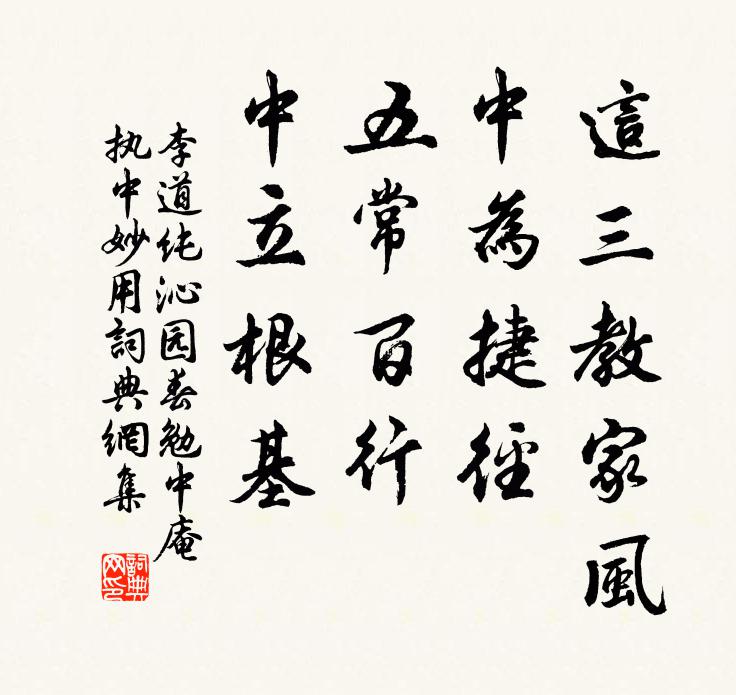 這三教家風
中為捷徑
五常百行
中立根基
李道纯沁园春勉中庵
执中妙用詞典網集
詞典
网印